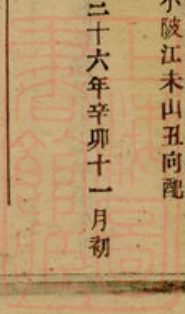 小陂江未山丑向配
二十六年辛卯十一月初